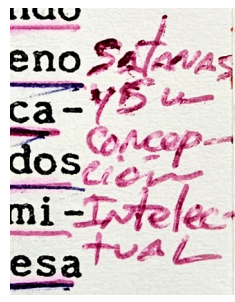 ndo
eno
ca-
dos
mi-
esa
Satanas
y su
concep-
ción
Intelec-
tual